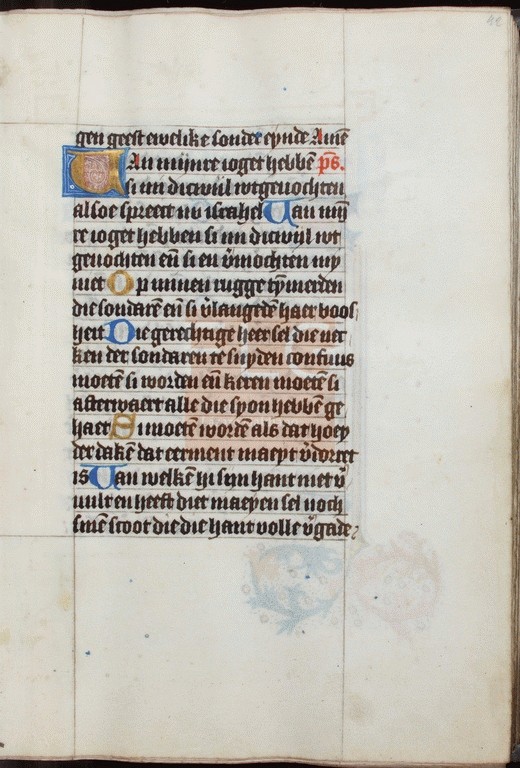 gen geest ewelike sonder eynde Amē
Van mijnre ioget hebbē ps.
si mi dicwijl wtgeuochten
alsoe spreect nv israhel Van mijn
re ioget hebben si mi dicwijl wt
geuochten eñ si en v̄mochten my
niet Op minen rugge tȳmerden
die sondarē eñ si v̄langedē haer boos
heit Die gerechtige heer sel die nec
ken der sondaren te sniyden confuus
moetē si worden eñ keren moetē si
afterwaert alle die syon hebbē ge
haet Si moetē wordē als dat hoey
der dakē dat eerment maeyt v̄dorret
is Van welkē hi sijn hant niet v̄
vult en heeft diet maeyen sel noch
sinē scoot die die hant volle v̄gade